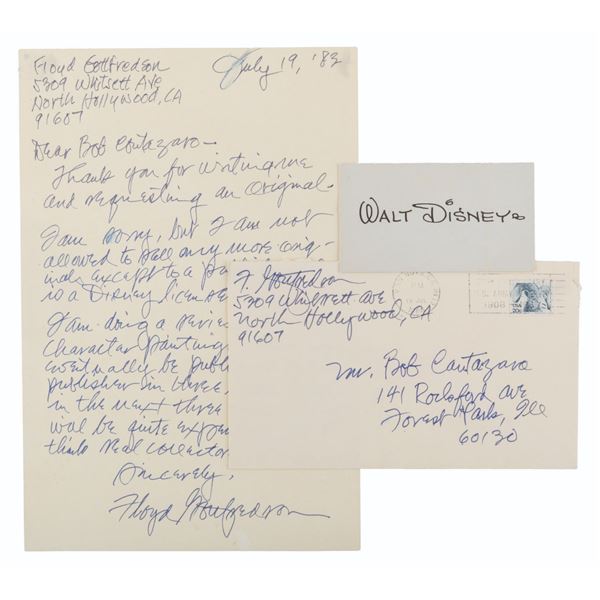 Floyd Gottfredson
5309 Whitsett Ave
North Hollywood, CA
91607
July 19, '83
Dear Bob Cantazaro—
Thank you for writing me
and requesting an original.
I am sorry, but I am not
allowed to sell any more orig-
inals except to a
is a Disney
I am doing a
character painting
eventually be
publisher in three,
in the next three
will be quite
think real
Sincerely,
Floyd Gottfredson
WALT DISNEY
F. Gottfredson
5309 Whitsett Ave
North Hollywood, CA
91607
USA
20c
Mr. Bob Cantazaro
141 Rockford Ave
Forest Park, Ill
60130